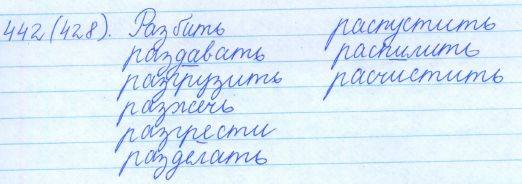 442 (428). Разбить распустить
раздавать распилить
разгрузить расчистить
разжечь
разгрести
разделать